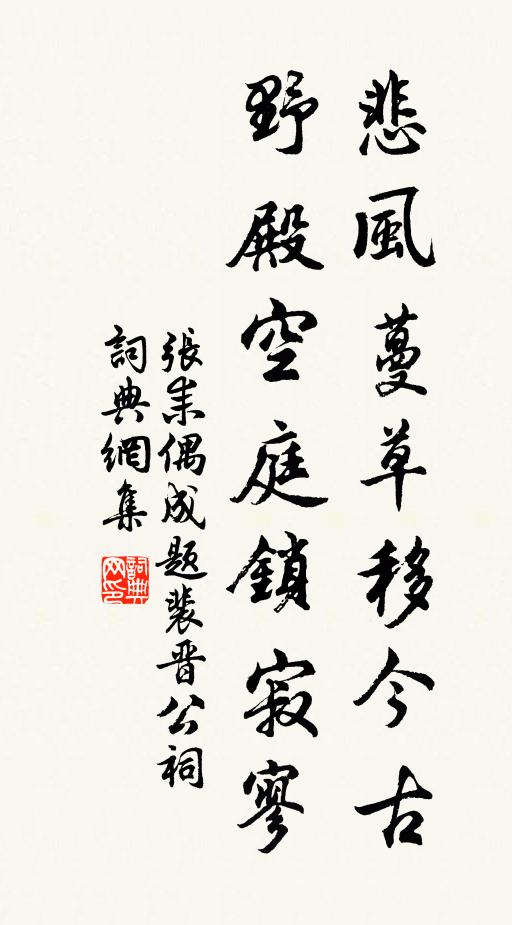 悲風蔓草移今古
野殿空庭鎖寂寥
張耒偶成题裴晋公祠
詞典網集
詞典网印